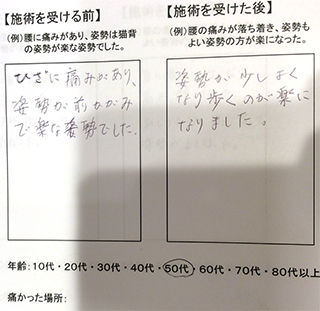 【施術を受ける前】
(例)腰に痛みがあり、姿勢は猫背
の姿勢が楽な姿勢でした。
ひざに痛みがあり、
姿勢が前かがみ
で楽な姿勢でした。
【施術を受けた後】
(例)腰の痛みが落ち着き、姿勢も
よい姿勢の方が楽になった。
姿勢が少しよく
なり歩くのが楽に
なりました。
年齢:10代・20代・30代・40代・50代・60代・70代・80代以上
痛かった場所: